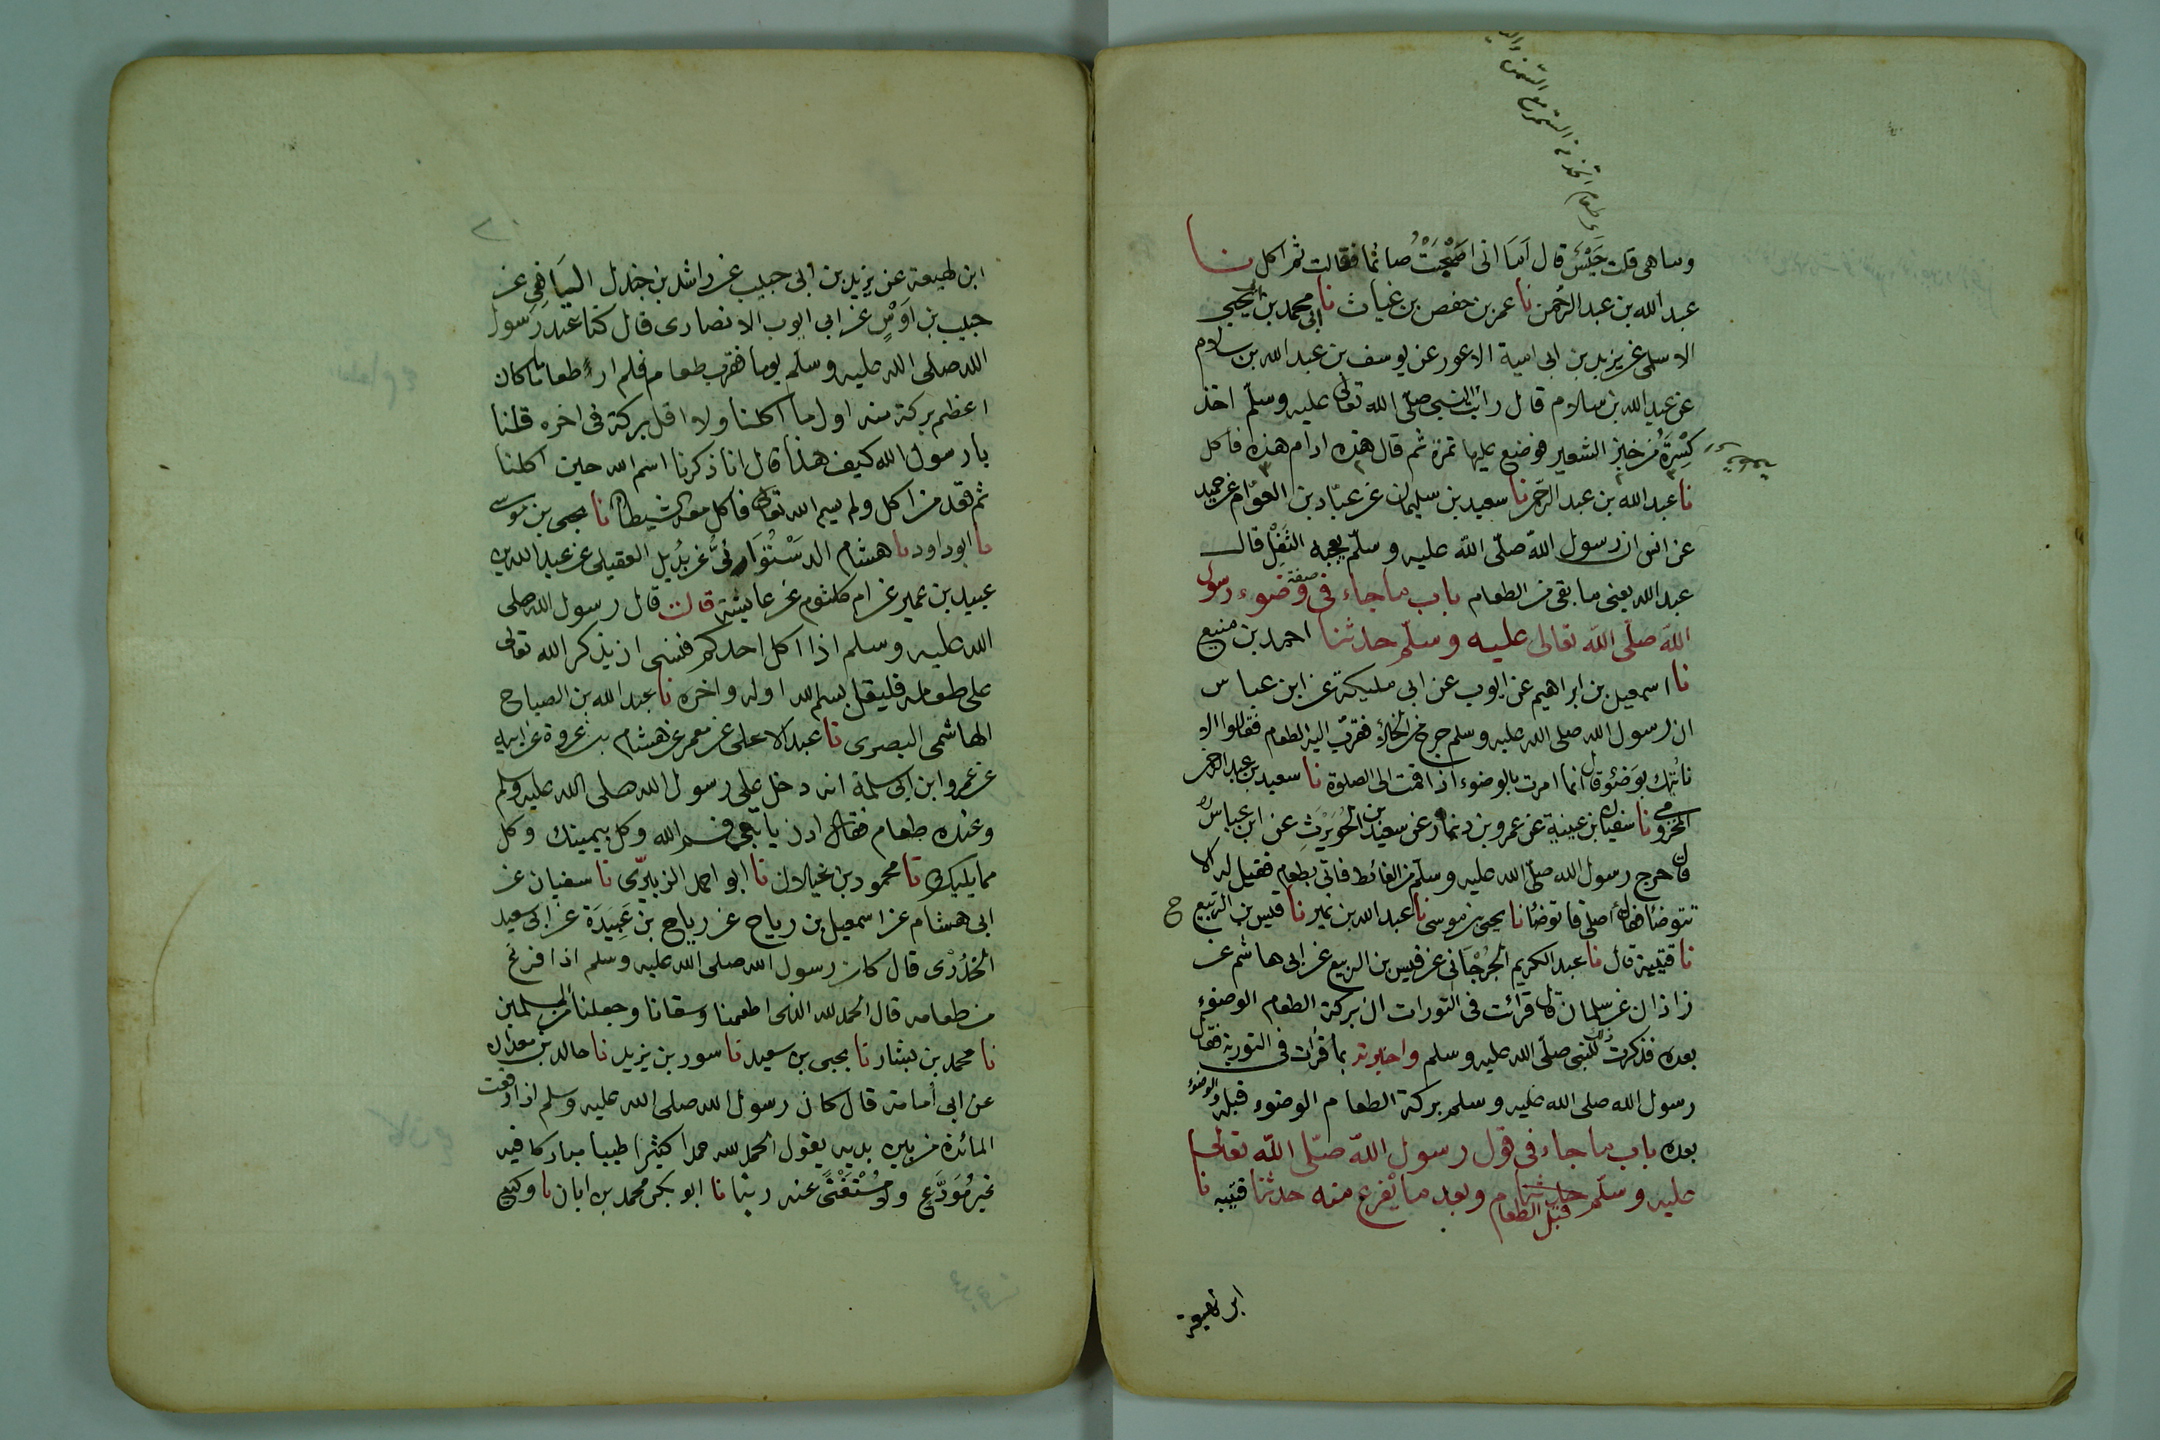 وما هى قلت حَيْسٌ قال اَمَا انى اصْبَحْتُ صائما فقالت ثم اكل نا
عبد الله بن عبد الرحمن نا عمر بن حفص بن غياث نا ابى محمد بن ابى يحيى
الاسلمى عن يزيد بن ابى امية الاعور عن يوسف بن عبد الله بن سلام
عن عبد الله بن سلام قال رايت النبى صلى الله تعالى عليه وسلم اخذ
كِسْرَةً من خبز الشعير فوضع عليها تمرة ثم قال هذه ادام هذه فاكل
نا عبد الله بن عبد الرحمن نا سعيد بن سليمان عن عبّاد بن العوّام عن حميد
عن انس ان رسول الله صلى الله عليه وسلم يعجبه الثفل قال
عبد الله يعنى ما بقى من الطعام باب ما جاء فى صفة وضوء رسول
الله صلى الله تعالى عليه وسلم حدثنا احمد بن منيع
نا اسمعيل بن ابراهيم عن ايوب عن ابى مليكة عن ابن عباس
ان رسول الله صلى الله عليه وسلم خرج من الخلاء فقرب اليه الطعام فقالوا الا
نأتيك بوَضُوء قال انما امرت بالوضوء اذا قمت الى الصلوة نا سعيد بن عبد الرحمن
المخزومى نا سفيان بن عيينة عن عمرو بن دينار عن سعيد بن الحُوَيْرِثِ عن ابن عباس
قال خرج رسول الله صلى الله عليه وسلم من الغائط فاتى بطعام فقيل له الا
تتوضأ فقال أصلى فاتوضأ نا يحيى بن موسى نا عبد الله بن نمير نا قيس بن الربيع ح
نا قتيبة قال نا عبد الكريم الجُرْجَانى عن قيس بن الربيع عن ابى هاشم عن
زاذان عن سلمان قال قرات فى التورات ان بركة الطعام الوضوء
بعده فذكرت ذلك للنبى صلى الله عليه وسلم واخبرته بما قرات فى التورية فقال
رسول الله صلى الله عليه وسلم بركة الطعام الوضوء قبله والوضوء
بعده باب ما جاء فى قول رسول الله صلى الله تعالى
عليه وسلم قبل الطعام وبعد ما يفرغ منه حدثنا قتيبه نا
ابن لهيعة
ابن لهيعة عن يزيد بن ابى حبيب عن راشد بن جندل اليَافِعى عن
حبيب بن اَوْسٍ عن ابى ايوب الانصارى قال كنا عند رسول
الله صلى الله عليه وسلم يوما فقرب طعام فلم ار طعاما كان
اعظم بركة منه اول ما اكلنا ولا اقل بركة فى اخره قلنا
يا رسول الله كيف هذا قال انا ذكرنا اسم الله حين اكلنا
ثم قعد من اكل ولم يسم الله تعالى فاكل معه الشيطان نا يحيى بن موسى
نا ابو داود نا هشام الدسْتُوَائىُّ عن بُدَيل العقيلى عن عبد الله بن
عبيد بن عمير عن ام كلثوم عن عايشة قالت قال رسول الله صلى
الله عليه وسلم اذا اكل احدكم فنسى ان يذكر الله تعالى
على طعامه فليقل بسم الله اوله واخره نا عبد الله بن الصباح
الهاشمى البصرى نا عبد الاعلى عن معمر عن هشام بن عروة عن ابيه
عن عمرو ابن ابى سلمة انه دخل على رسول الله صلى الله عليه وسلم
وعنده طعام فقال ادن يا بنى فسم الله وكل بيمينك وكل
مما يليك نا محمود بن غيلان نا ابو احمد الزبيرى نا سفيان عن
ابى هشام عن اسمعيل بن رياح عن رياح بن عَبِيدَة عن ابى سعيد
الخُدْرى قال كان رسول الله صلى الله عليه وسلم اذا فرغ
من طعامه قال الحمد لله الذى اطعمنا وسقانا وجعلنا من المسلمين
نا محمد بن بشار نا يحيى بن سعيد نا سور بن يزيد نا خالد بن معدان
عن ابى أمامة قال كان رسول الله صلى الله عليه وسلم اذا رفعت
المائدة من بين يديه يقول الحمد لله حمدا كثيرا طيبا مباركا فيه
غير مُوَدَّعٍ ولا مُسْتَغْنًى عنه ربنا نا ابو بكر محمد بن ابان نا وكيع